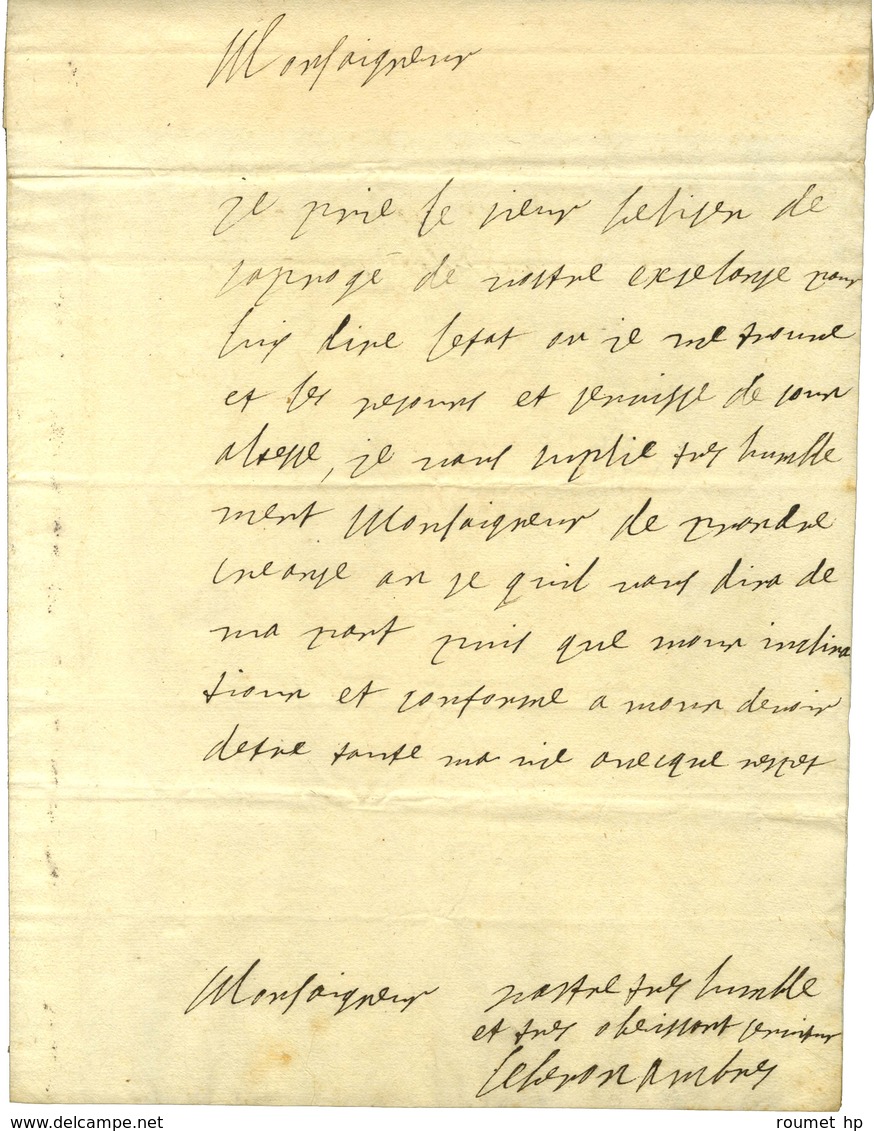 Monsaigneur
je prie le sieur belisen de
saproge de vostre exselanse pour
luy dire letat ou je me trouve
et les secours et servisse de sour
altesse, je vous suplie tres humble
ment Monsaigneur de prandre
creanse an se quil vous dira de
ma part puis que moun inclina
tioun et conforme a moun devoir
detre toute ma vie avecque respet
Monsaigneur vostre tres humble
et tres obeissant serviteur
leberon ambres
www.delcampe.net
roumet hp